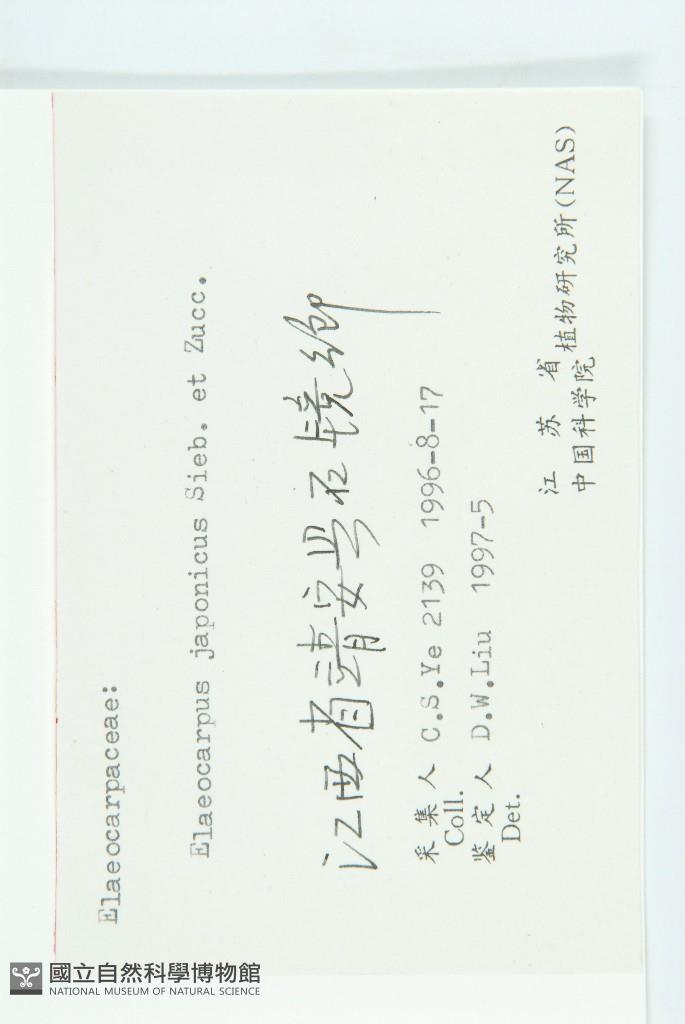 Elaeocarpaceae:
Elaeocarpus japonicus Sieb. et Zucc.
江西省靖安县石镜鄉
采集人 C.S.Ye 2139 1996-8-17
Coll.
鉴定人 D.W.Liu 1997-5
Det.
江苏省植物研究所(NAS)
中国科学院
國立自然科學博物館
NATIONAL MUSEUM OF NATURAL SCIENCE